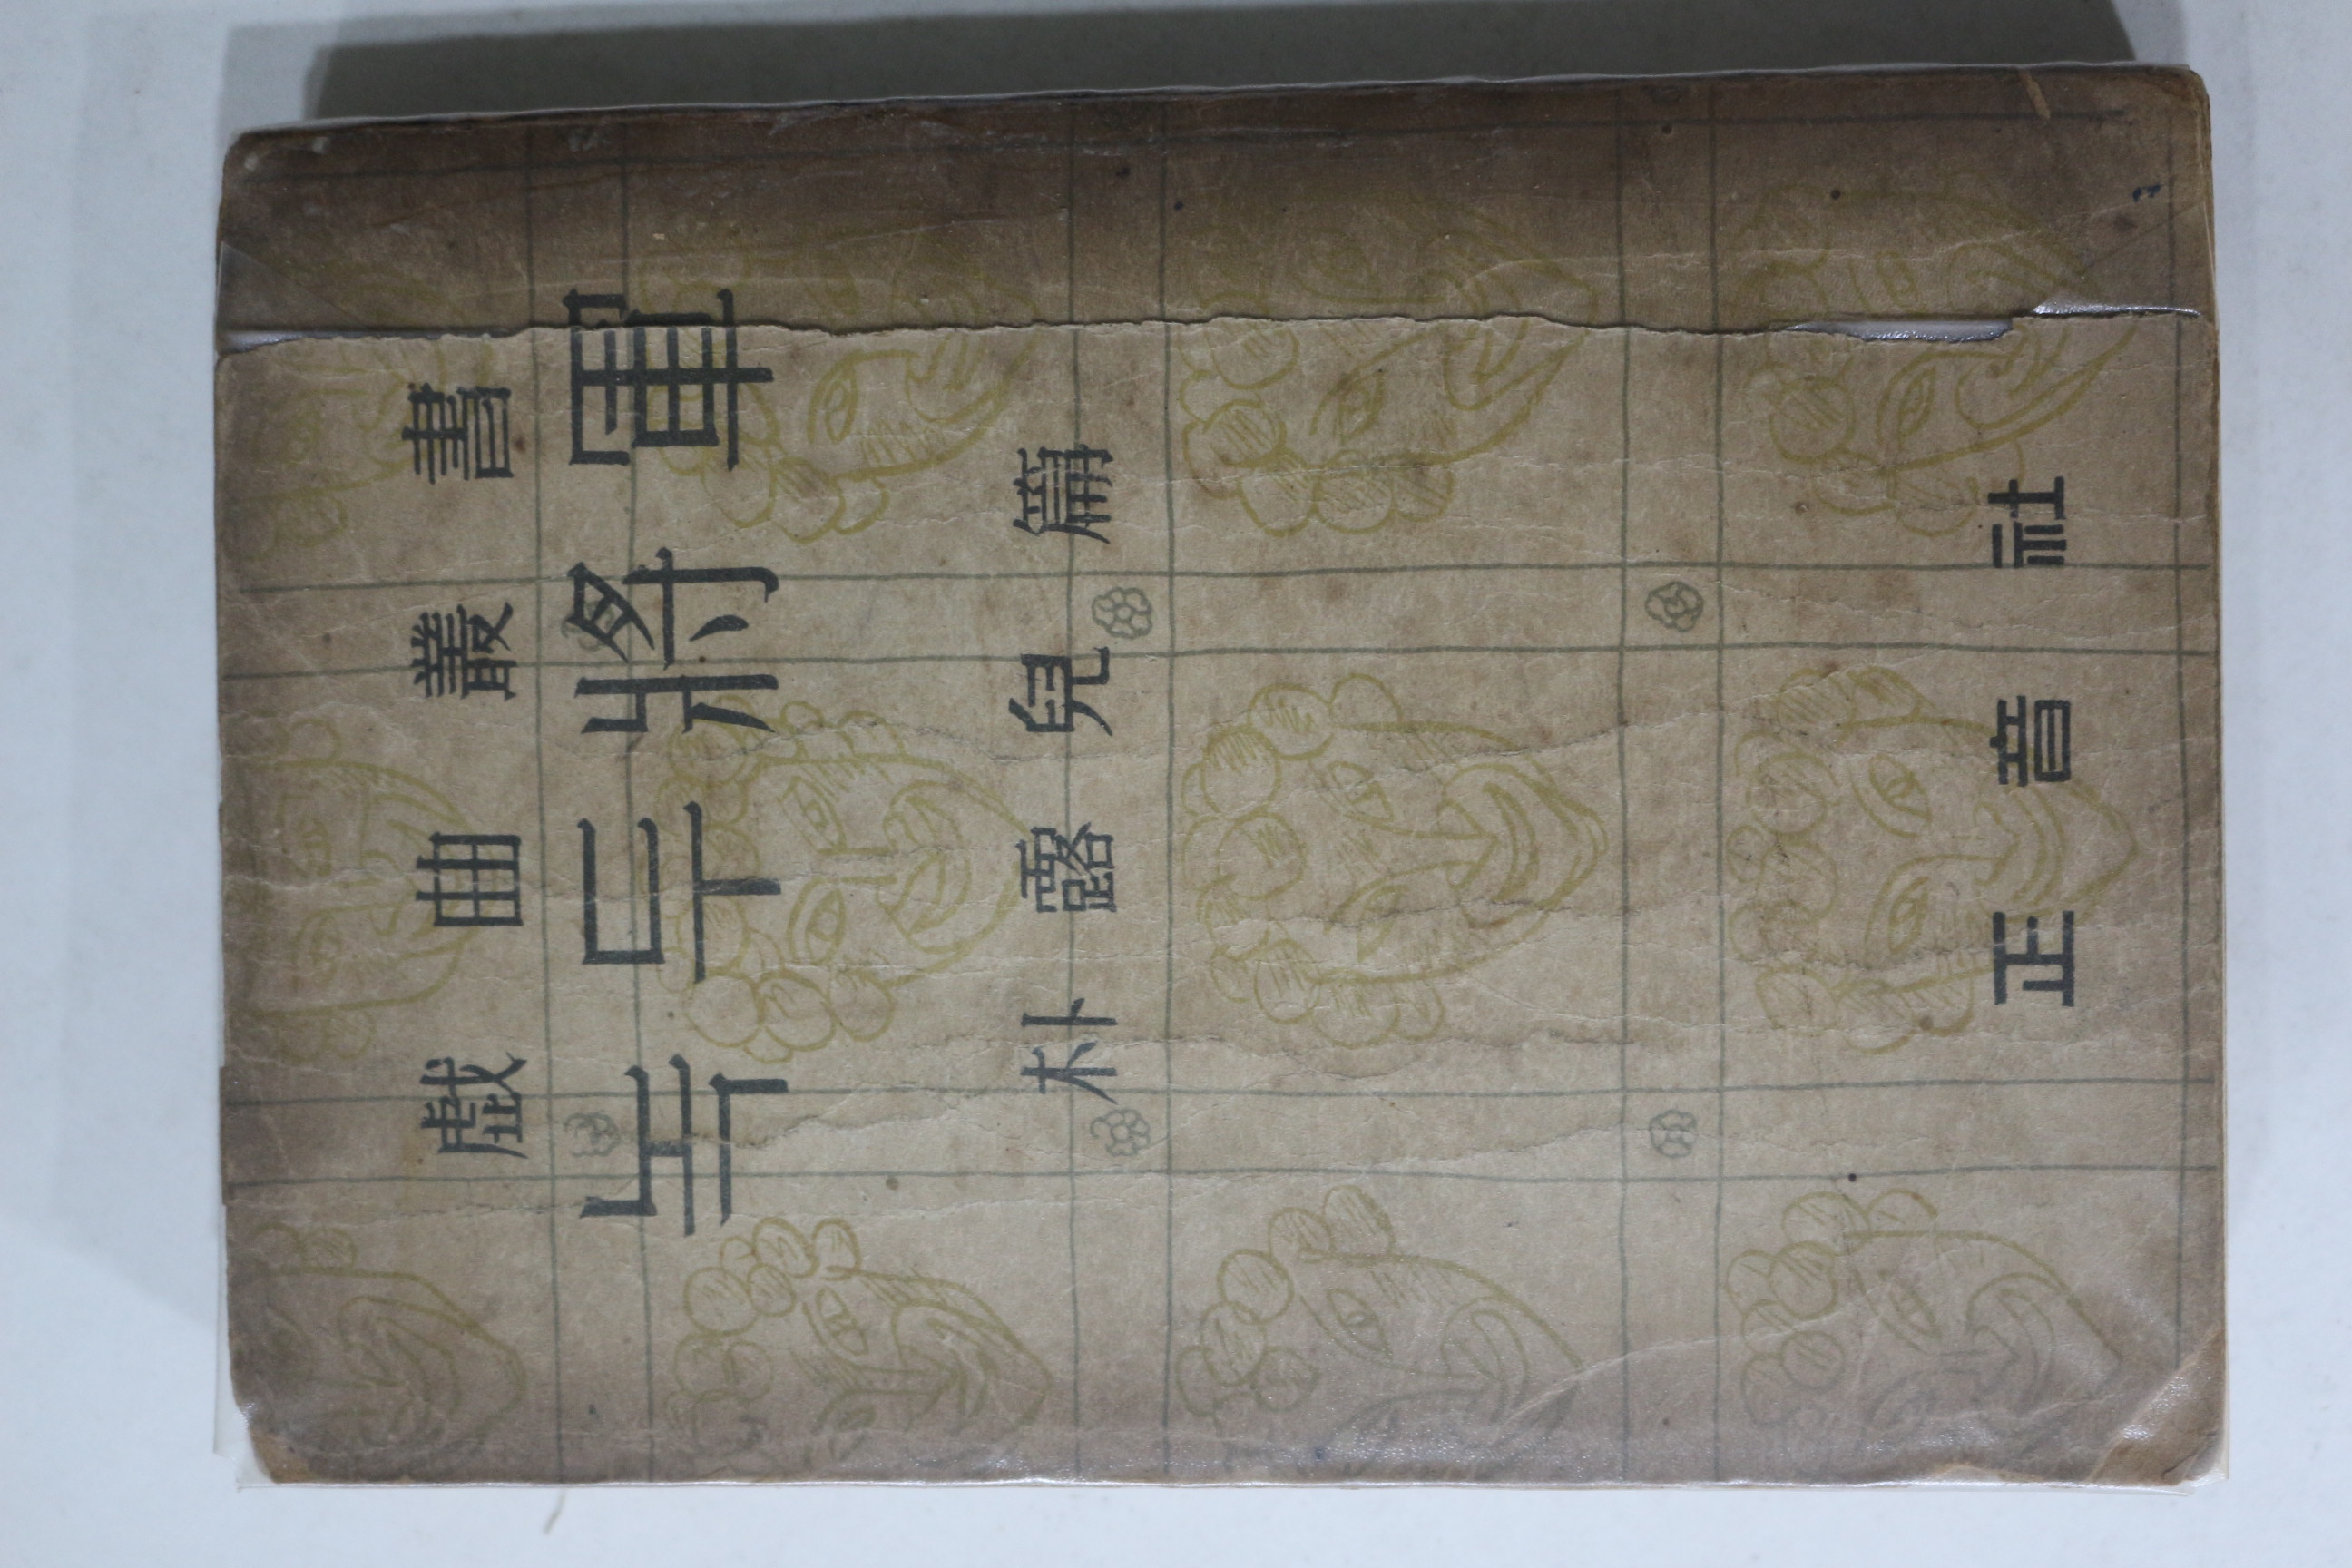 戯曲叢書
녹두將軍
朴露兒篇
正音社